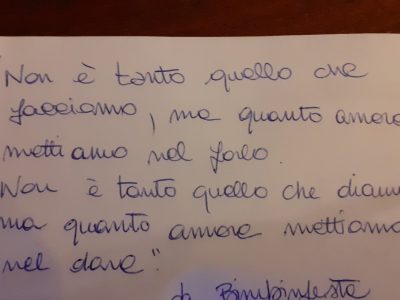 "Non è tanto quello che
facciamo, ma quanto amore
mettiamo nel farlo.
Non è tanto quello che diamo
ma quanto amore mettiamo
nel dare".